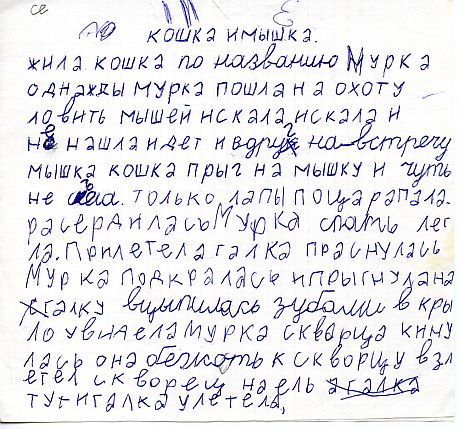 се
кошка и мышка.
жила кошка по названию Мурка
однажды мурка пошла на охоту
ловить мышей искала, искала и
не нашла идет и вдруг на встречу
мышка кошка прыг на мышку и чуть
не
только лапы поцарапала.
расердилась Мурка спать лег
ла. Прилетела галка праснулась
Мурка подкралась и прыгнула на
галку вцыпилась зубами в кры
ло увидела Мурка скварца кину
лась она бежать к скворцу взл
етел скворец на ель а галка
тут и галка улетела,